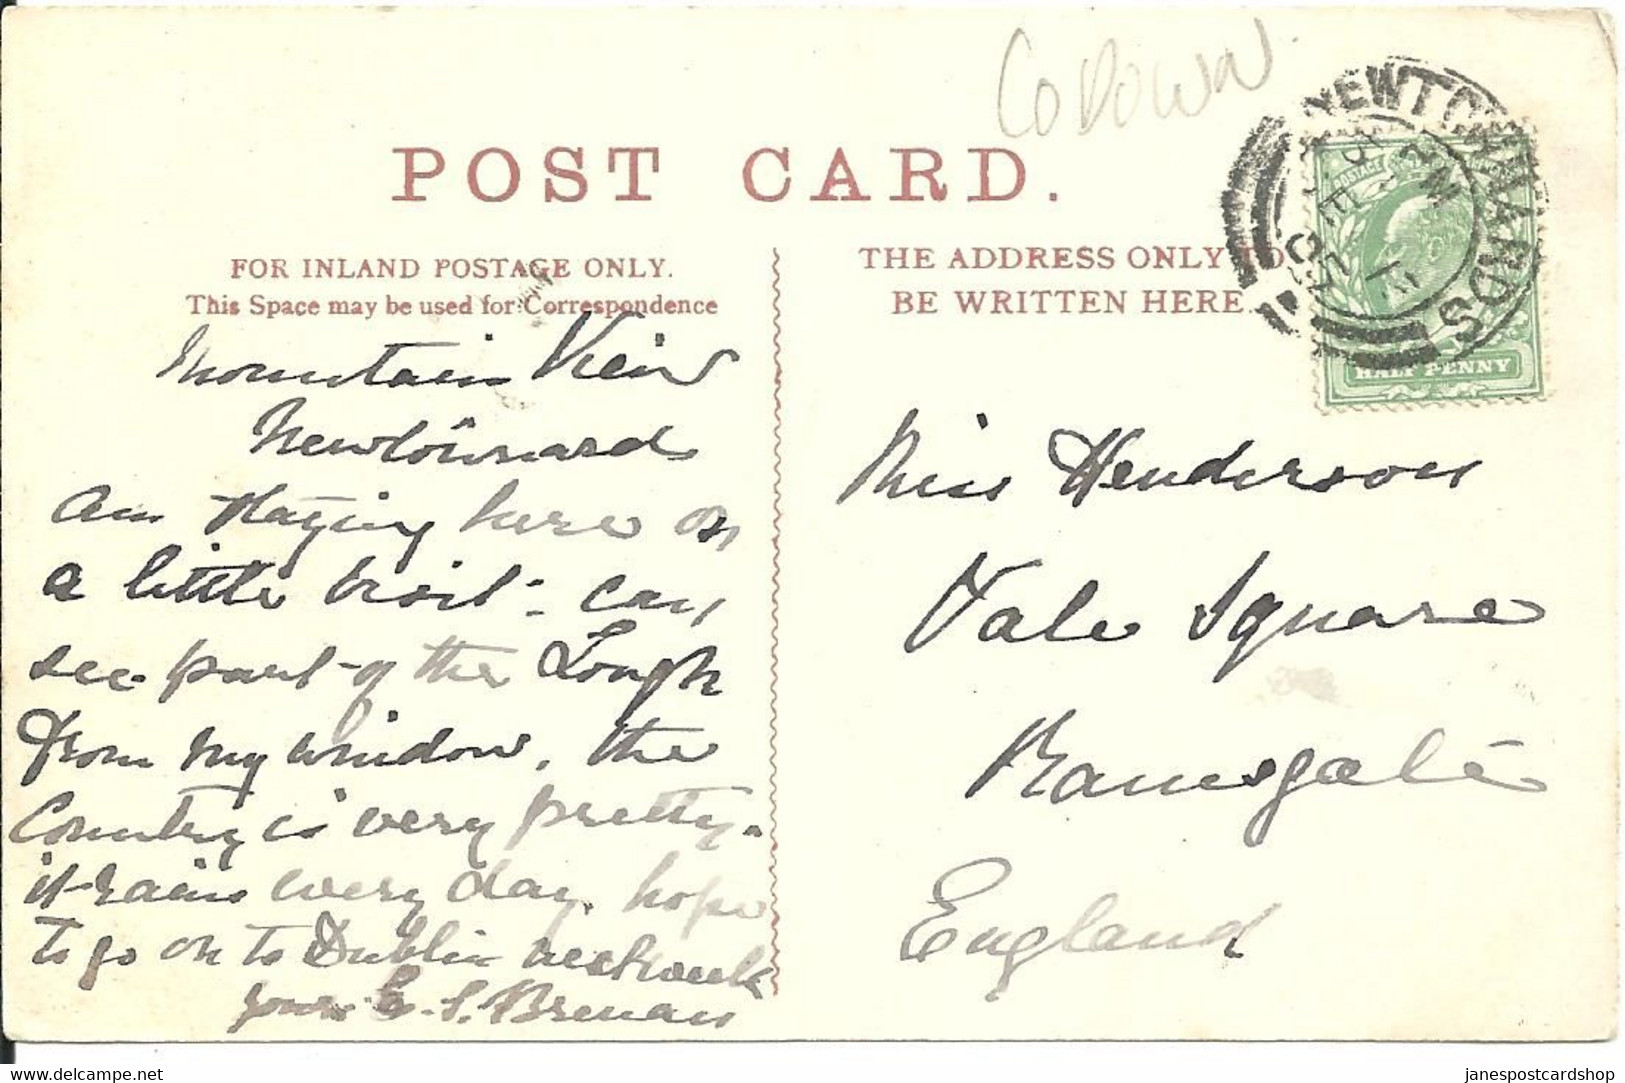 Co Down
POST CARD.
FOR INLAND POSTAGE ONLY.
This Space may be used for Correspondence
THE ADDRESS ONLY TO
BE WRITTEN HERE.
NEWTOWNARDS
POSTAGE
HALF PENNY
Mountain View
Newtownards
Am staying here on
a little visit - can
see part of the Lough
from my window, the
Country is very pretty.
it rains every day. hope
to go on to Dublin next week
yours E. S. Brenan
Miss Henderson
Vale Square
Ramsgate
England
delcampe.net
janespostcardshop